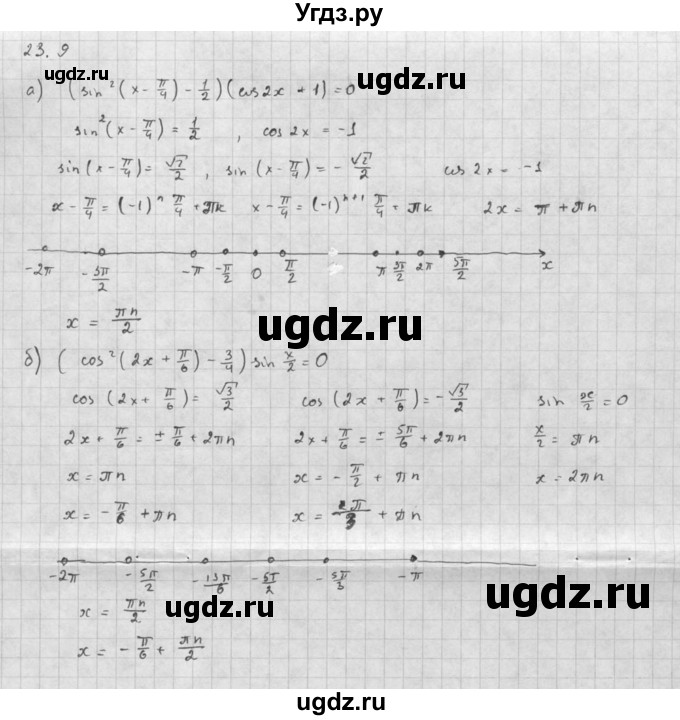 Угдз.ру
23.9
ugdz.ru ugdz.ru
а) (sin²(x - π/4) - 1/2)(cos 2x + 1) = 0
sin²(x - π/4) = 1/2 , cos 2x = -1
sin(x - π/4) = √2/2 , sin(x - π/4) = - √2/2 cos 2x = -1
x - π/4 = (-1)ⁿ π/4 + πk x - π/4 = (-1)ⁿ⁺¹ π/4 + πk 2x = π + πn
-2π -3π/2 -π -π/2 0 π/2 π 3π/2 2π 5π/2 x
x = πn/2
ugdz.ru ugdz.ru
б) (cos²(2x + π/6) - 3/4) sin x/2 = 0
cos(2x + π/6) = √3/2 cos(2x + π/6) = - √3/2 sin x/2 = 0
2x + π/6 = ± π/6 + 2πn 2x + π/6 = ± 5π/6 + 2πn x/2 = πn
x = πn x = - π/2 + πn x = 2πn
x = - π/6 + πn x = π/3 + πn
ugdz.ru
-2π -5π/2 -13π/6 -5π/2 -5π/3 -π
x = πn/2
ugdz.ru ugdz.ru
x = - π/6 + πn/2
ugdz.ru